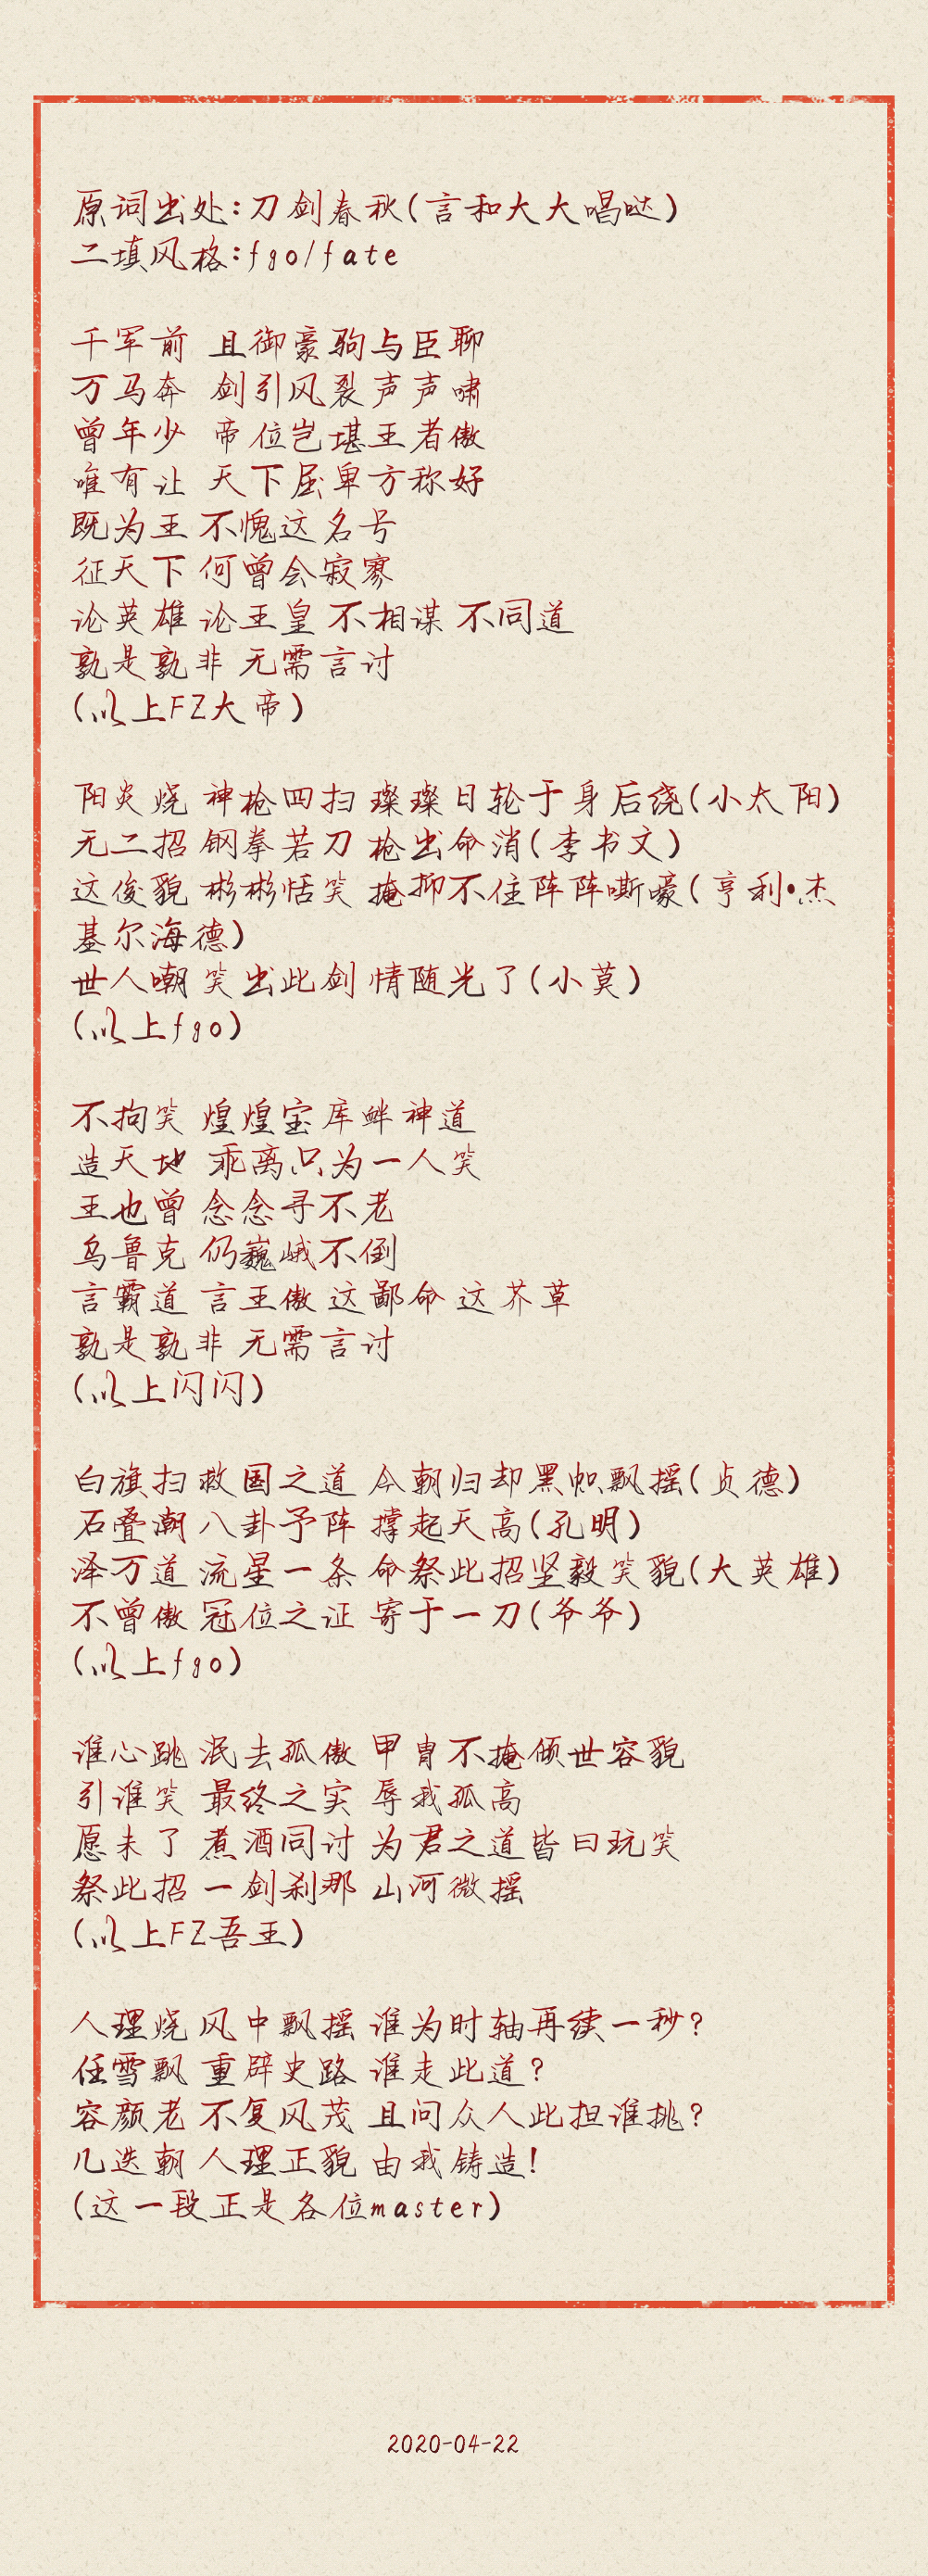 原词出处:刀剑春秋(言和大大唱哒)
二填风格:fgo/fate
千军前 且御豪驹与臣聊
万马奔 剑引风裂声声啸
曾年少 帝位岂堪王者傲
唯有让 天下屈卑方称好
既为王 不愧这名号
征天下 何曾会寂寥
论英雄 论王皇 不相谋 不同道
孰是孰非 无需言讨
(以上FZ大帝)
阳炎烧 神枪四扫 璨璨日轮于身后绕(小太阳)
无二招 钢拳若刀 枪出命消(李书文)
这俊貌 彬彬恬笑 掩抑不住阵阵嘶嚎(亨利•杰
基尔海德)
世人嘲笑 出此剑 情随光了(小莫)
(以上fgo)
不拘笑 煌煌宝库衅神道
造天地 乖离只为一人笑
王也曾 念念寻不老
乌鲁克 仍巍峨不倒
言霸道 言王傲 这鄙命 这芥草
孰是孰非 无需言讨
(以上闪闪)
白旗扫 救国之道 今朝归却黑帜飘摇(贞德)
石叠潮 八卦予阵 撑起天高(孔明)
泽万道 流星一条 命祭此招坚毅笑貌(大英雄)
不曾傲 冠位之证 寄于一刀(爷爷)
(以上fgo)
谁心跳 泯去孤傲 甲胄不掩倾世容貌
引谁笑 最终之实 辱我孤高
愿未了 煮酒同讨 为君之道皆曰玩笑
祭此招 一剑刹那 山河微摇
(以上FZ吾王)
人理烧 风中飘摇 谁为时轴再续一秒?
任雪飘 重辟史路 谁走此道?
容颜老 不复风茂 且问众人此担谁挑?
几迭朝 人理正貌 由我铸造!
(这一段正是各位master)
2020-04-22